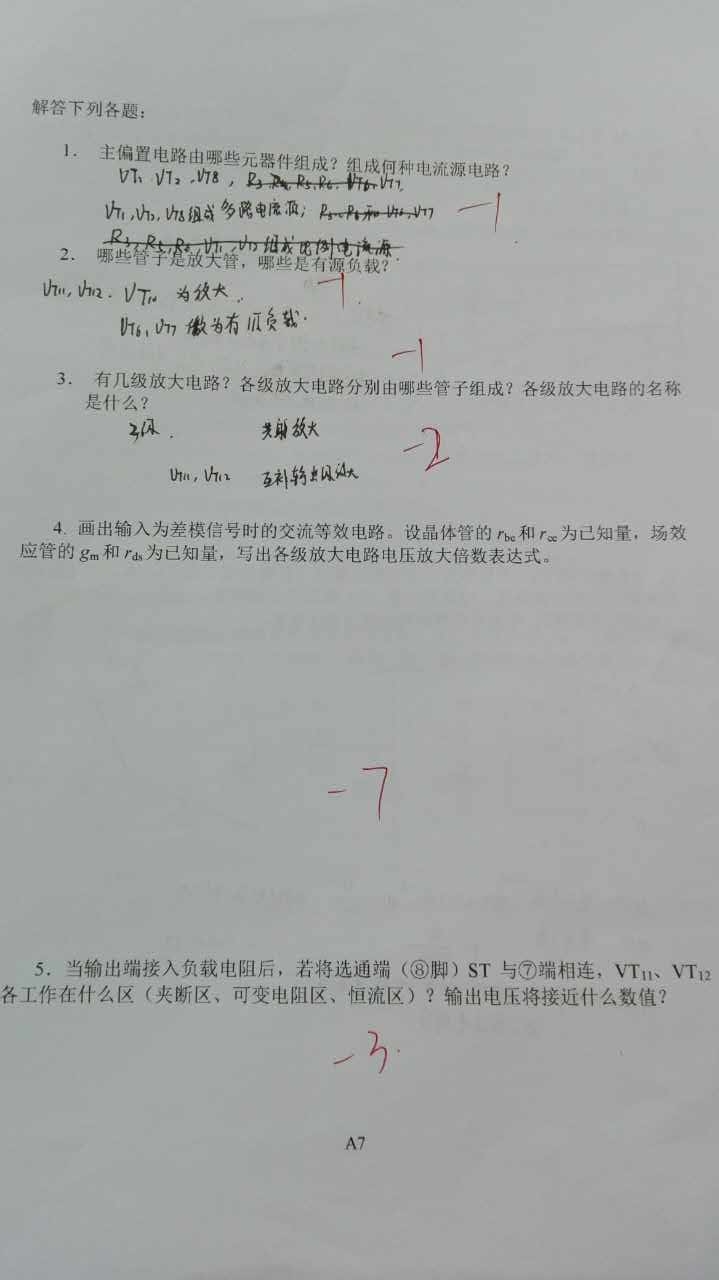 解答下列各题：
1． 主偏置电路由哪些元器件组成？组成何种电流源电路？
VT1 VT2 、VT8，R3 R4, R5, R6、VT6, VT7,
VT1, VT2, VT8组成多路电流源； VT6, VT7
-1
R3, R5, R6, VT1, VT2组成比例电流源
2． 哪些管子是放大管，哪些是有源负载？
VT11, VT12 . VT10 为放大 .
-1
VT6, VT7 做为有源负载.
-1
3． 有几级放大电路？各级放大电路分别由哪些管子组成？各级放大电路的名称
是什么？
3级 . 共射放大
-2
VT11, VT12 互补输出级放大
4. 画出输入为差模信号时的交流等效电路。设晶体管的 rbe 和 rce 为已知量，场效
应管的 gm 和 rds 为已知量，写出各级放大电路电压放大倍数表达式。
-7
5．当输出端接入负载电阻后，若将选通端（⑧脚）ST 与⑦端相连，VT11、VT12
各工作在什么区（夹断区、可变电阻区、恒流区）？输出电压将接近什么数值？
-3.
A7